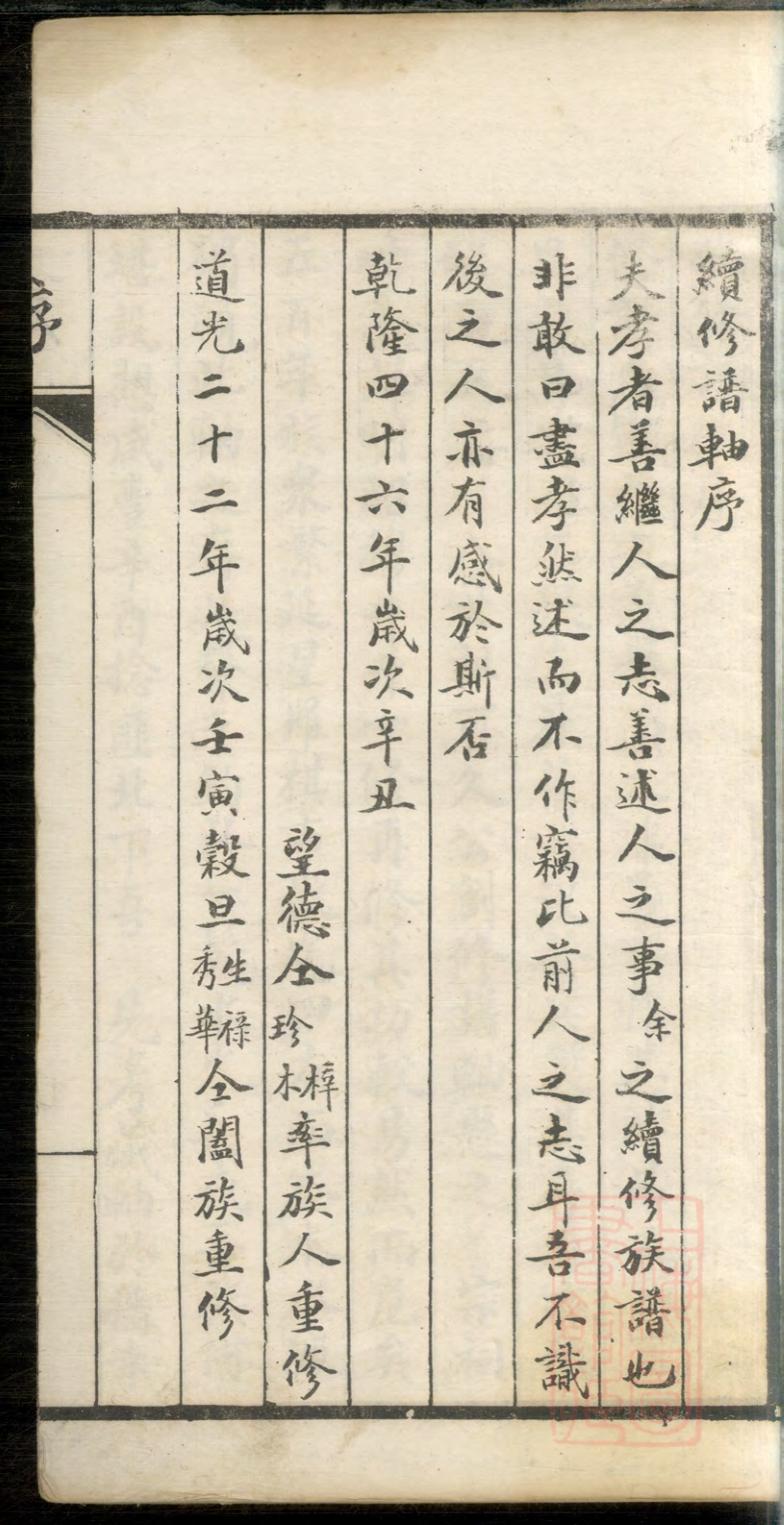 續修譜軸序
夫孝者善繼人之志善述人之事余之續修族譜也
非敢曰盡孝然述而不作竊比前人之志耳吾不識
後之人亦有感於斯否
乾隆四十六年歲次辛丑
望德仝珍梓木率族人重修
道光二十二年歲次壬寅穀旦生秀祿華仝闔族重修
序